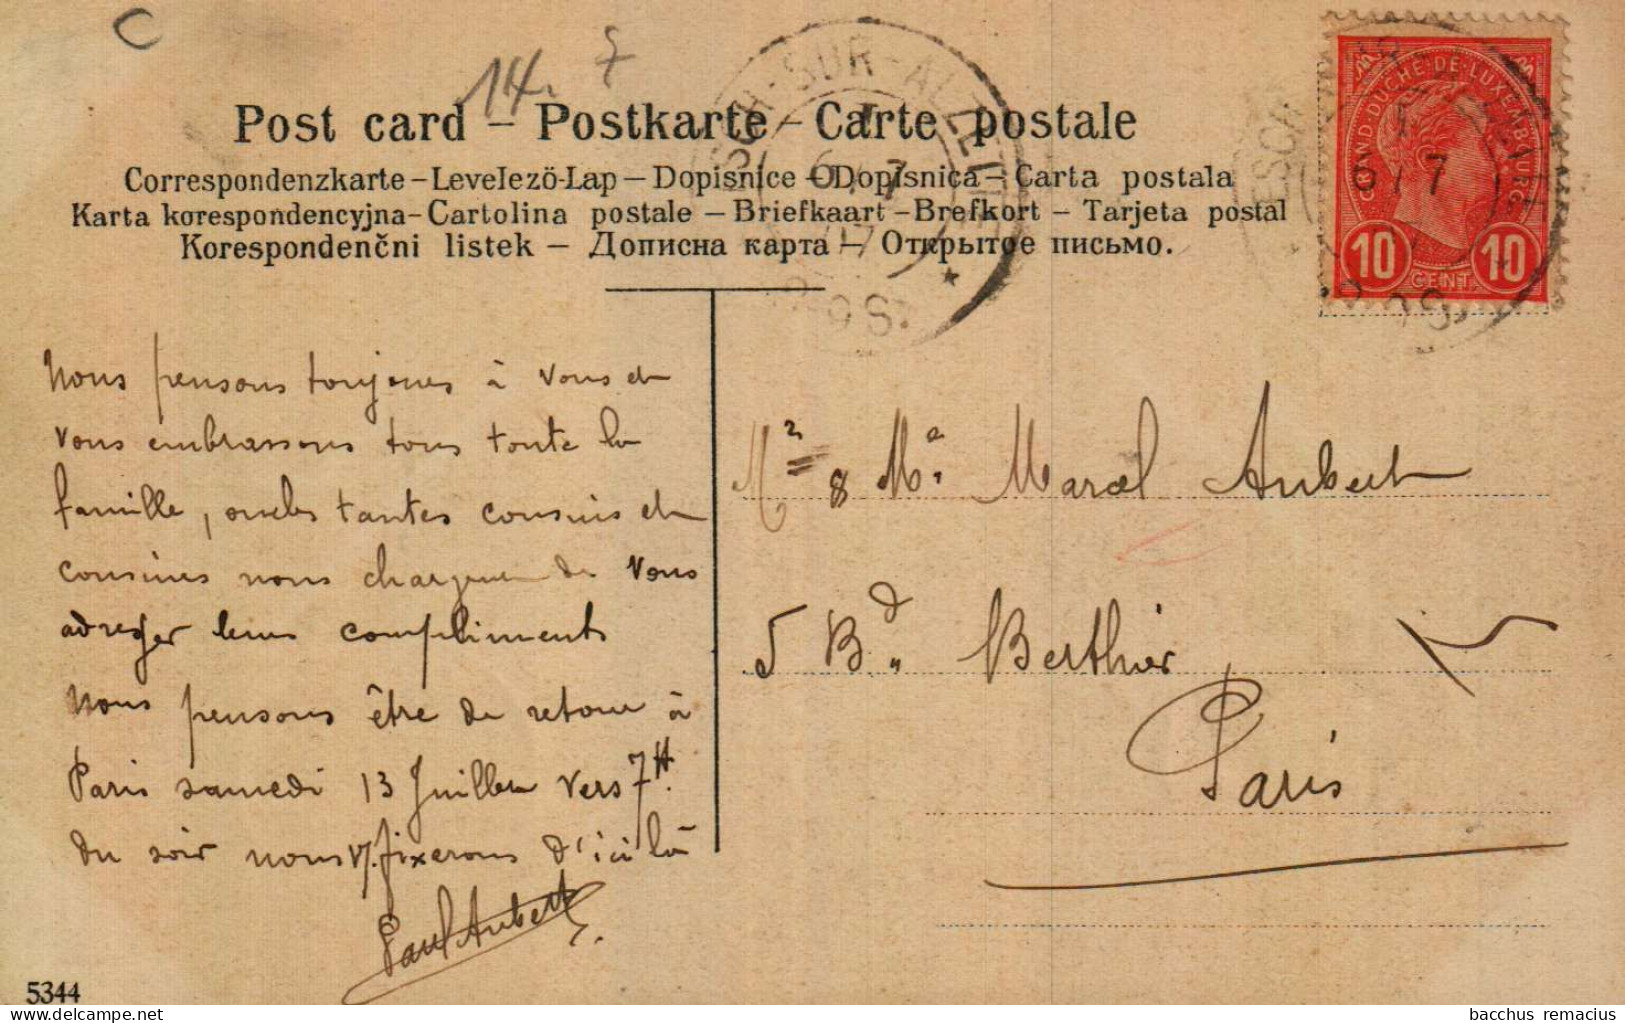 C
14. 7
Post card – Postkarte – Carte postale
Correspondenzkarte – Levelező-Lap – Dopisnice – Dopisnica – Carta postala
Karta korespondencyjna – Cartolina postale – Briefkaart – Brefkort – Tarjeta postal
Korespondenční listek – Дописна карта – Открытое письмо.
ESCH-SUR-ALZETTE
6/7
GRAND-DUCHÉ-DE-LUXEMBOURG
10 10
CENT.
Nous pensons toujours à vous et
vous embrassons tous toute la
famille, oncles tantes cousins et
cousines nous chargent de vous
adresser leurs compliments
Nous pensons être de retour à
Paris samedi 13 Juillet vers 7H.
du soir nous v. fixerons d'ici là
Paul Aubert
Mr & Me Marcel Aubert
5 Bd. Berthier
Paris
5344
bacchus remacius